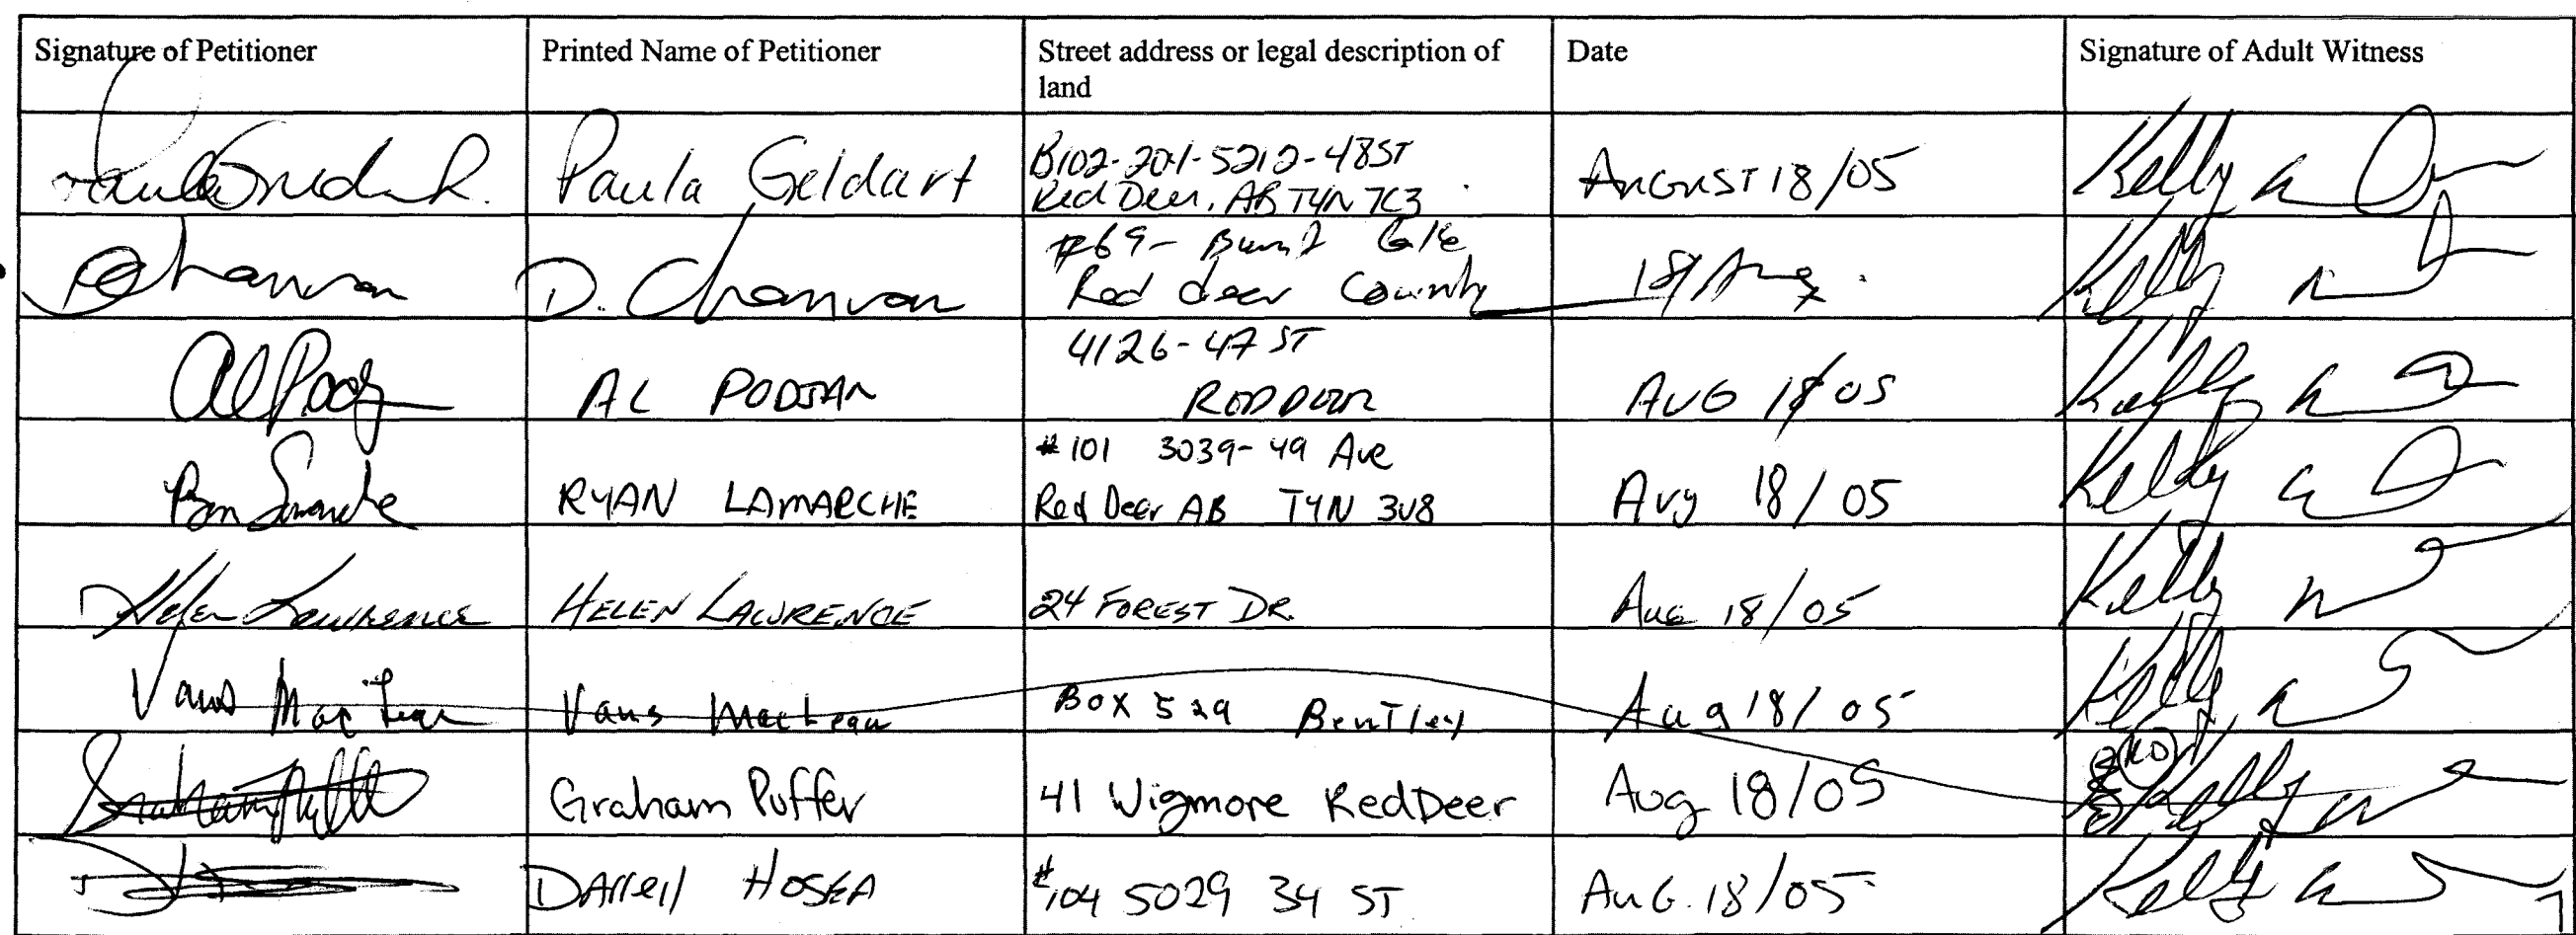 Signature of Petitioner
Printed Name of Petitioner
Street address or legal description of
land
Date
Signature of Adult Witness
Paula Geldart
B102-201-5212-48 ST
Red Deer, AB T4N 7C3
AUGUST 18/05
Kelly
D. Chanvan
#69-
Red deer County
18/Aug
Kelly
Al
AL PODJAN
4126-47 ST
RED DEER
AUG 18/05
Kelly
RYAN LAMARCHE
#101 3039-49 Ave
Red Deer AB T4N 3V8
Aug 18/05
Kelly
Helen Lawrence
HELEN LAWRENCE
24 FOREST DR.
Aug 18/05
Kelly
Vans MacLean
Vans MacLean
Box 529 Bentley
Aug 18/05
Kelly
Graham Puffer
41 Wigmore Red Deer
Aug 18/05
KO
Kelly
DArrell HOSEA
#104 5029 34 ST
AUG. 18/05
Kelly